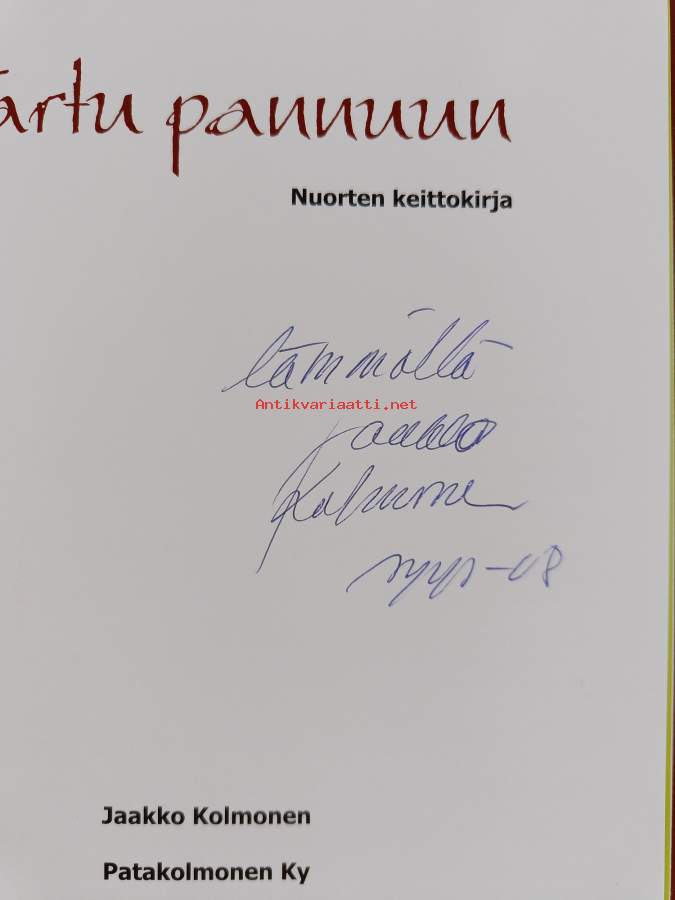 artu pannuun
Nuorten keittokirja
lämmöllä
Antikvariaatti.net
Jaakko
Kolmonen
syys-08
Jaakko Kolmonen
Patakolmonen Ky